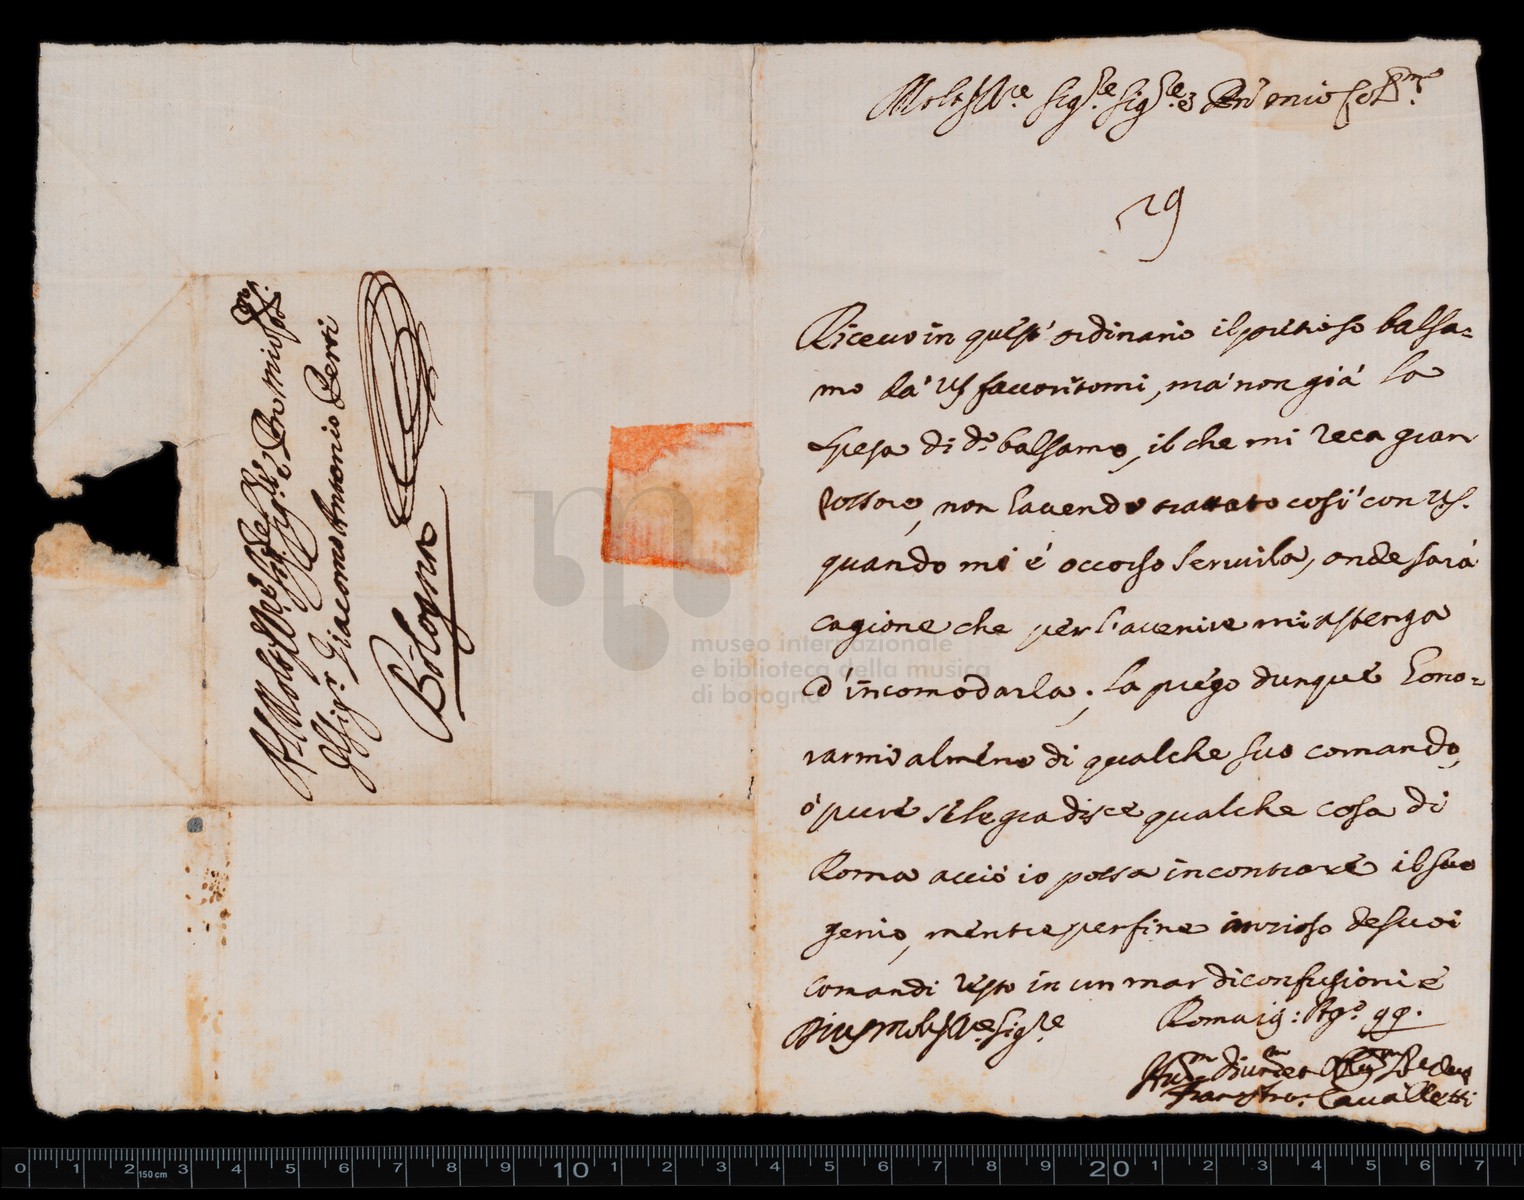 Molt Ill.re Sig.re Sig.re e Pron' mio Col.mo
29
Riceuo in quest' ordinario il pretioso balsa=
mo da' VS fauoritomi, ma' non già la
spesa di d.o balsamo, il che mi reca gran
rossore, non hauendo trattato così con VS.
quando mi è occorso seruirla, onde sarà
cagione che per l'auenire mi astenga
d'incomodarla; la priego dunque hono=
rarmi almeno di qualche suo comando,
ò pure se le gradisce qualche cosa di
Roma acciò io possa incontrare il suo
genio, mentre per fine ansioso de suoi
comandi resto in un mar di confusioni e
Di VS Molt Ill.re Sig.re
Roma 19: Ag.o 99.
Hum.mo Diuot.mo et Oblig.mo Se
Cavalletti
Al Molto Ill.re Sig.re Sig.re e Pron mio Col.mo
Il Sig.r Giacomo Antonio Perti
Bologna
museo internazionale
e biblioteca della musica
di bologna
0 1 2 3 4 5 6 7 8 9 10 1 2 3 4 5 6 7 8 9 20 1 2 3 4 5 6 7
150 cm